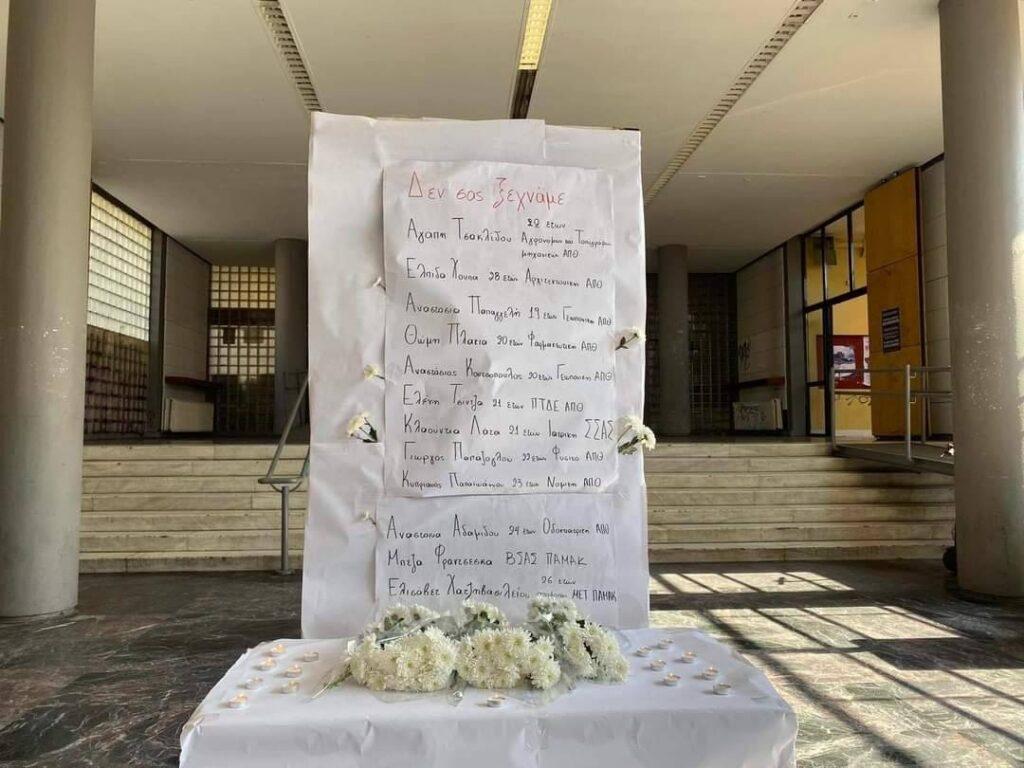 Δεν σας ξεχνάμε
22 ετών
Αγάπη Τσακλίδου Αγρονόμων και Τοπογράφων
μηχανικών ΑΠΘ
Ελπίδα Χούπα 28 ετών Αρχιτεκτονική ΑΠΘ
Αναστασία Παπαγγελή 19 ετών Γεωπονική ΑΠΘ
Θώμη Πλακια 20 ετών Φαρμακευτική ΑΠΘ
Αναστάσιος Κουτσόπουλος 20 ετών Γεωπονική ΑΠΘ
Ελένη Τσίντζα 21 ετών ΠΤΔΕ ΑΠΘ
Κλαούντια Λάτα 21 ετών Ιατρική ΣΣΑΣ
Γιώργος Παπάζογλου 22 ετών Φυσικό ΑΠΘ
Κυπριανός Παπαϊωάννου 23 ετών Νομική ΑΠΘ
Αναστασια Αδαμίδου 24 ετών Οδοντιατρική ΑΠΘ
Μπέζα Φραντσέσκα ΒΣΑΣ ΠΑΜΑΚ
26 ετών
Ελισάβετ Χατζηβασιλείου ΜΕΤ ΠΑΜΑΚ